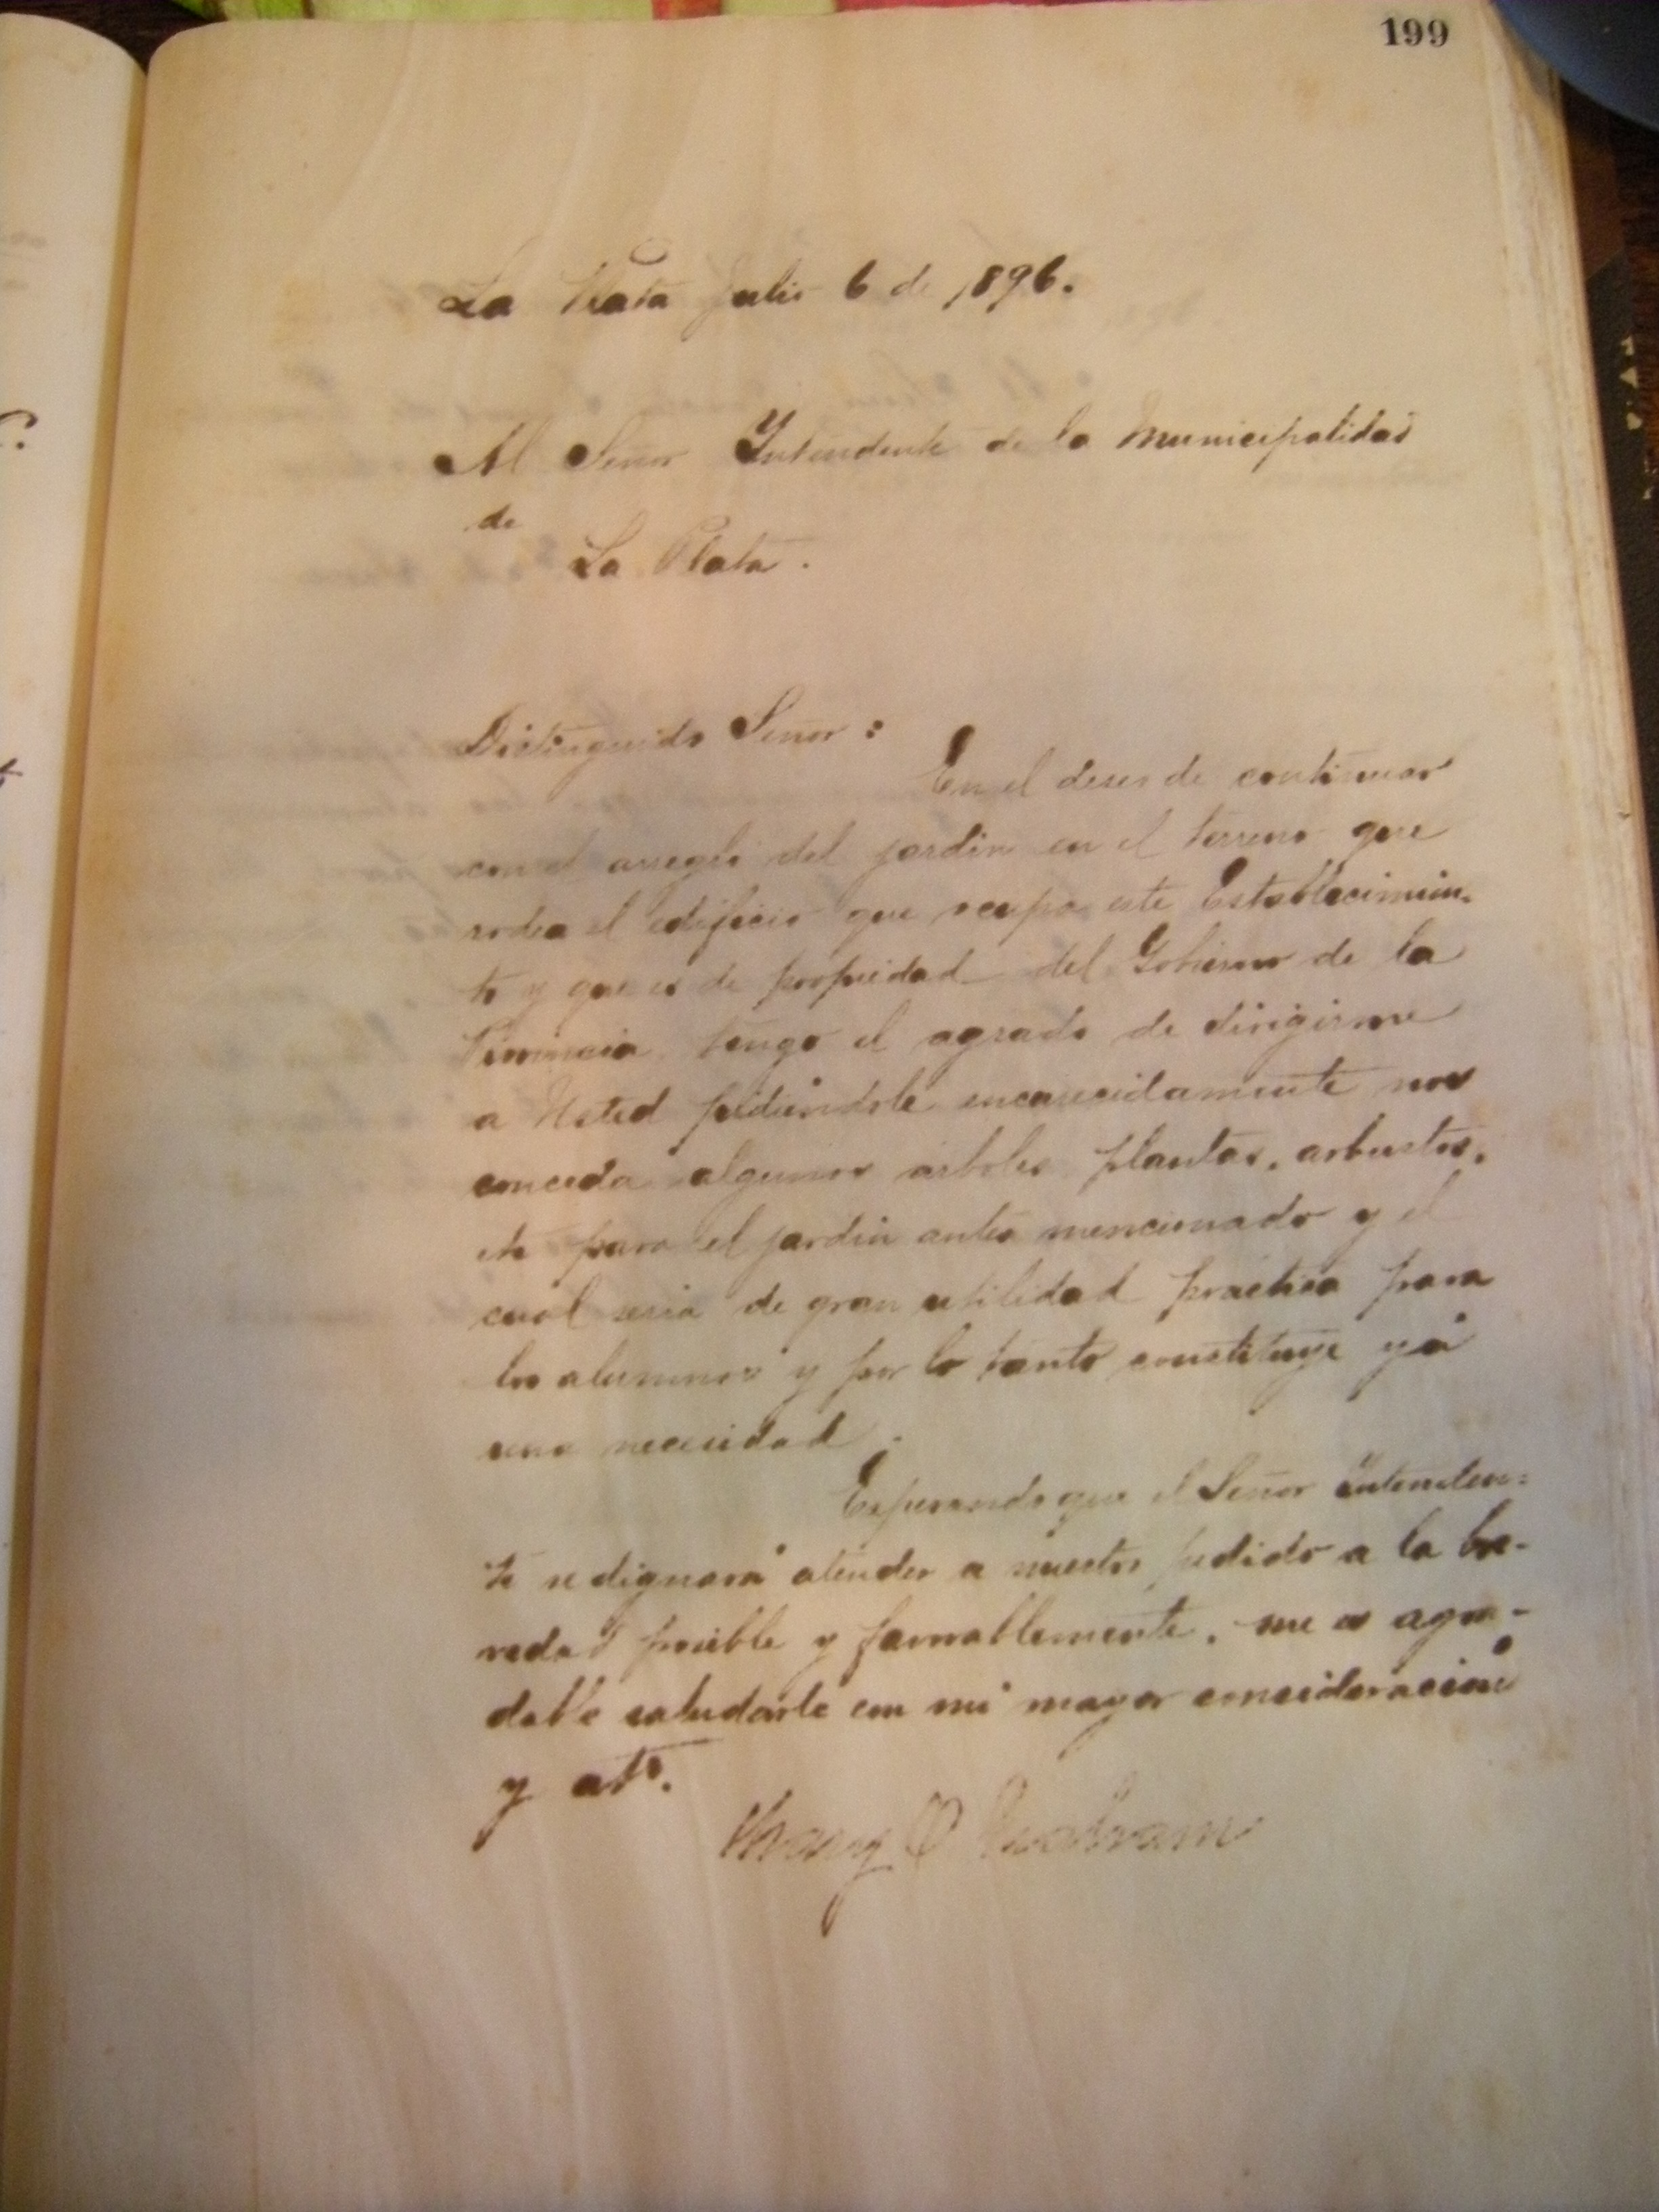 199
La Plata Julio 6 de 1896.
Al Señor Yntendente de la Municipalidad
de
La Plata.
Distinguido Señor:
En el deseo de continuar
con el arreglo del jardin en el terreno que
rodea el edificio que ocupa este Establecimien-
to y que es de propiedad del Gobierno de la
Provincia tengo el agrado de dirigirme
a Usted pidiendole encarecidamente nos
conceda algunos arboles plantas, arbustos,
etc para el jardin antes mencionado y el
cual seria de gran utilidad practica para
los alumnos y por lo tanto constituye yá
una necesidad.
Esperando que el Señor Intenden=
te se dignará atender a nuestro pedido a la bre-
vedad posible y favorablemente, me es agra-
dable saludarle con mi mayor consideracion
y atº.
Mary O Graham